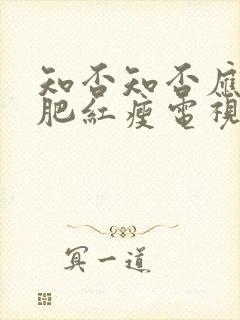 知否知否應
肥紅瘦電視
冥一道